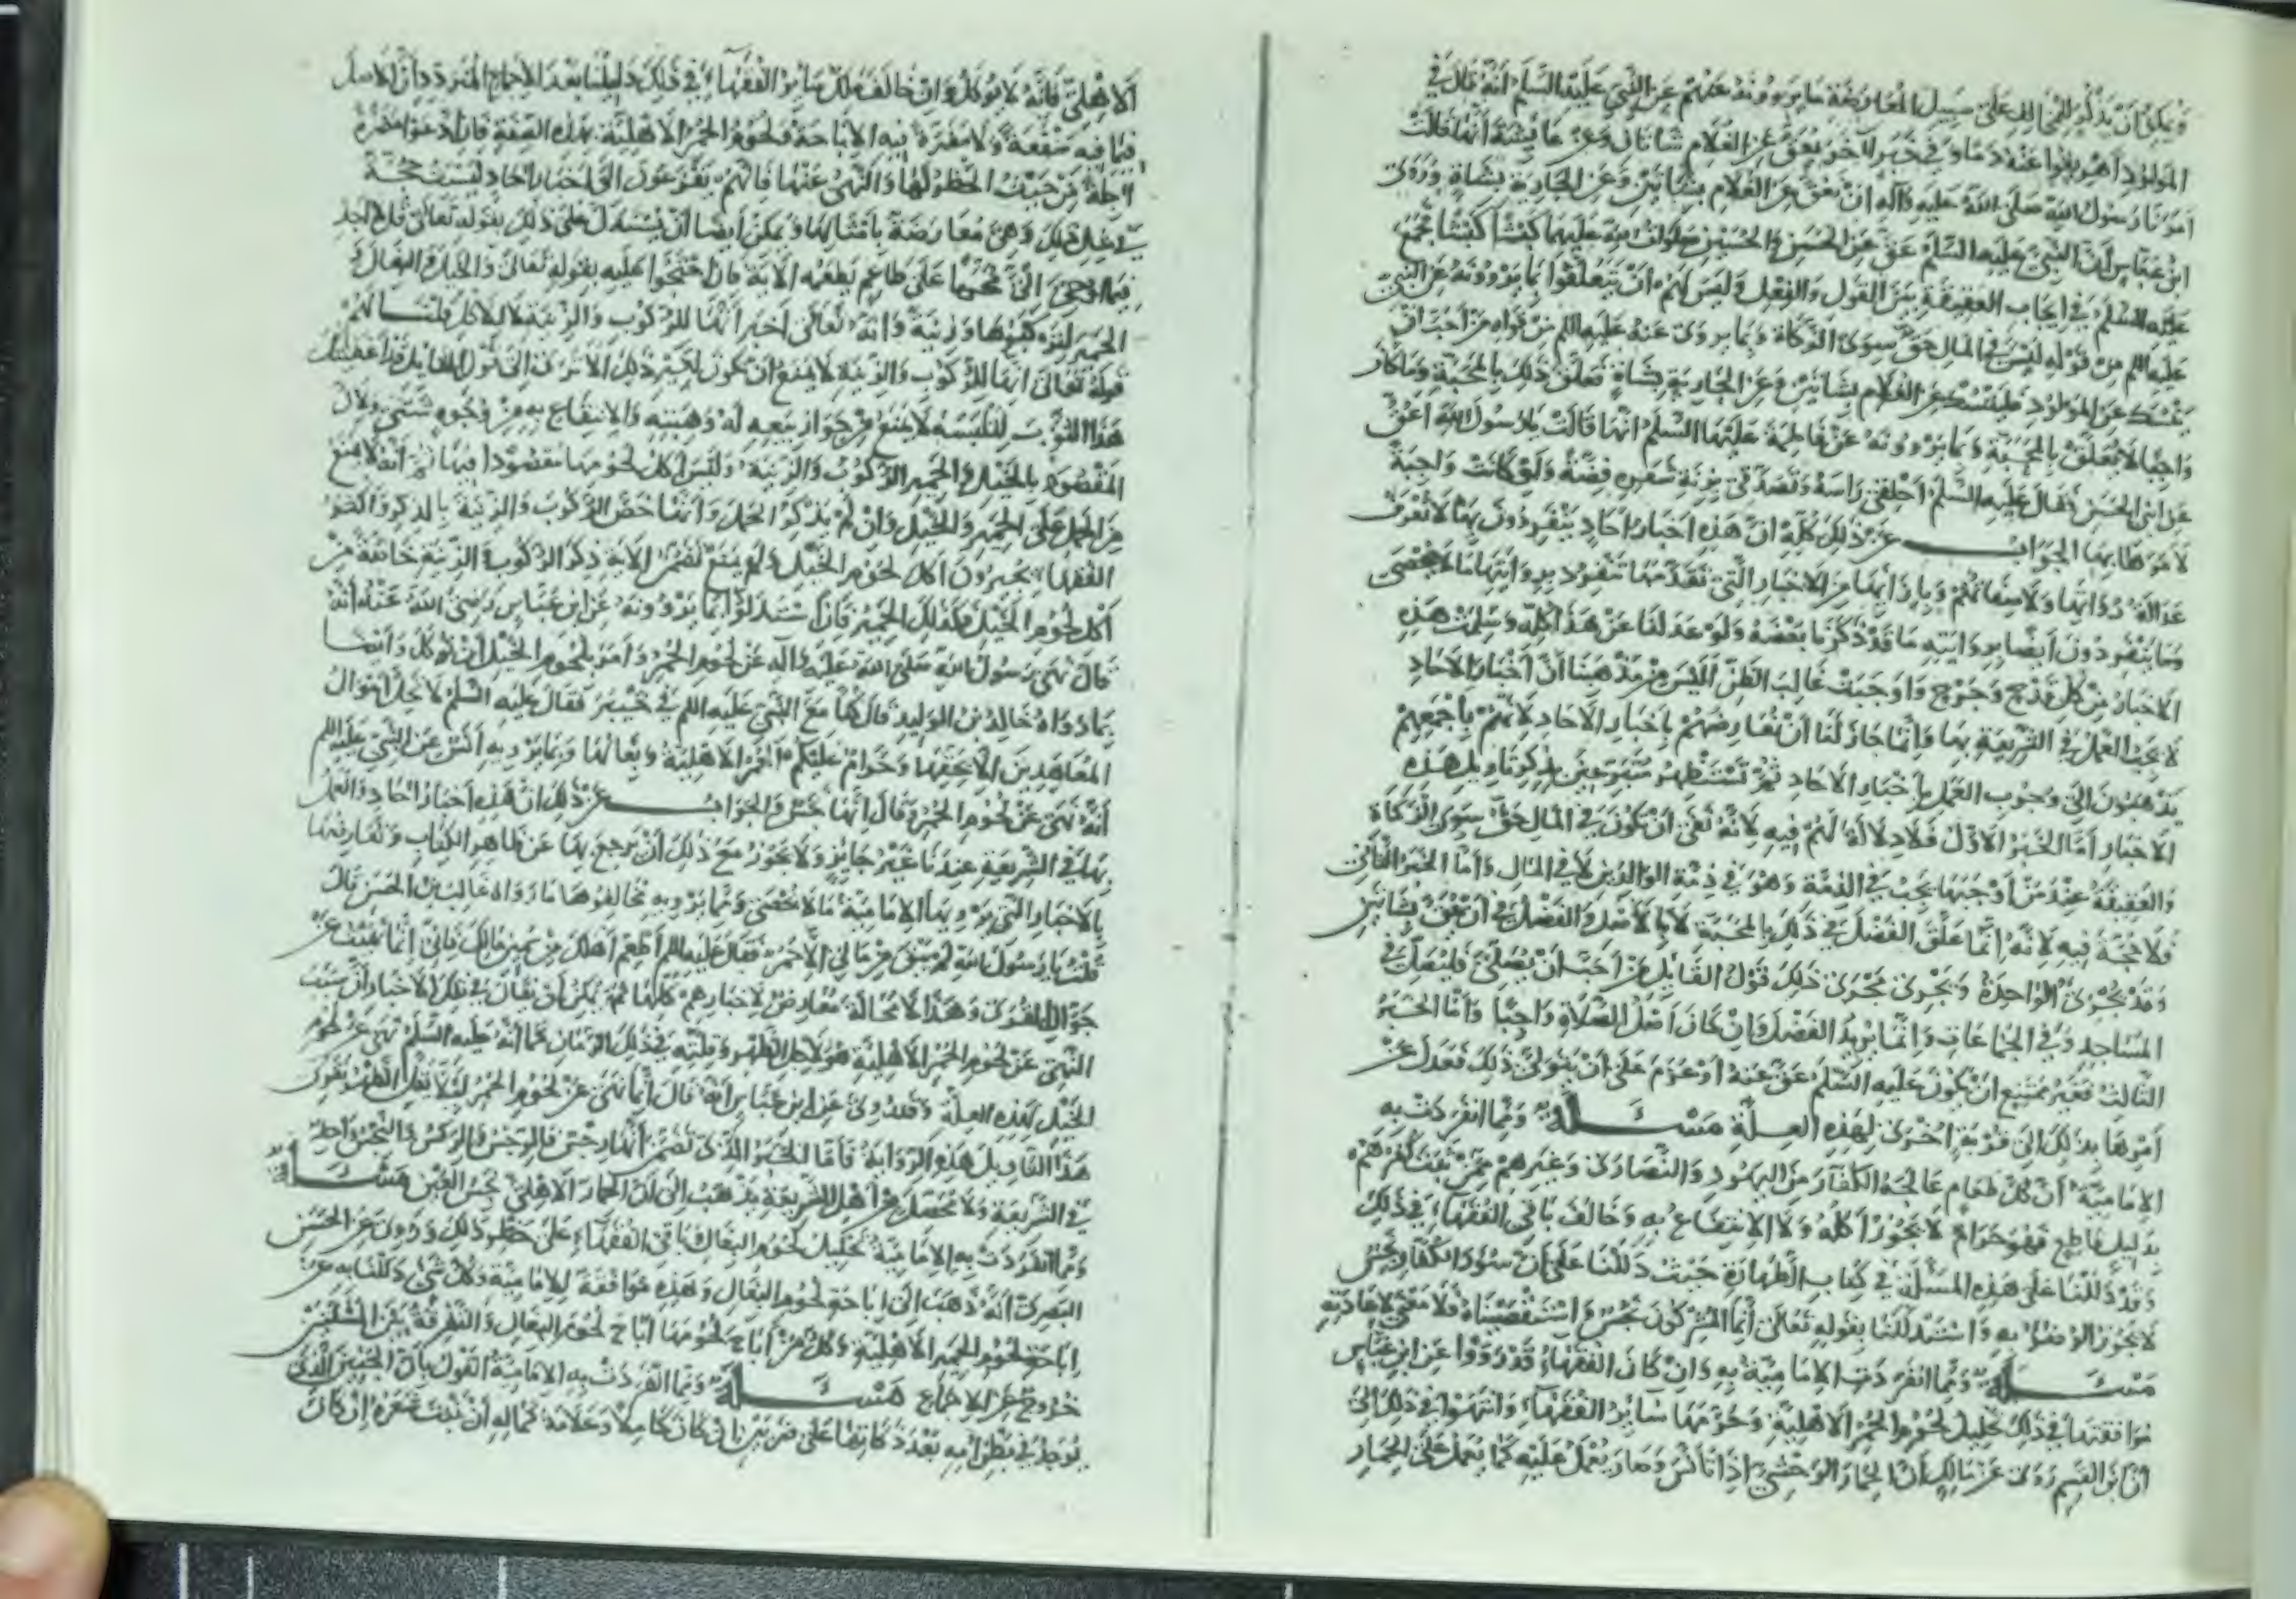 ويمكن أن يذكر للمخالف على سبيل المعارضة ما يروونه عنهم عن النبي عليه السلام أنه قال في
المولود أهريقوا عنه دما وفي خبر آخر يعق عن الغلام شاتان وعن عائشة أنها قالت
أمرنا رسول الله صلى الله عليه وآله أن نعق عن الغلام بشاتين وعن الجارية بشاة وروى
ابن عباس أن النبي عليه السلام عق عن الحسن والحسين عليهما كبشا كبشا فجمع
عليه السلم في إيجاب العقيقة بين القول والفعل وليس لهم أن يتعلقوا بما يروونه عن النبي
عليه السلم من قوله ليس في المال حق سوى الزكاة وبما يروى عنه عليه السلم من قوله من أحب أن
ينسك عن المولود فلينسك عن الغلام بشاتين وعن الجارية بشاة فعلق ذلك بالمحبة وما كان
واجبا لا يتعلق بالمحبة وبما يروونه عن فاطمة عليها السلم أنها قالت يا رسول الله أعق
عن ابني الحسن فقال عليه السلم احلقي رأسه وتصدقي بزنة شعره فضة ولو كانت واجبة
لأمرها بها الجواب عن ذلك كله ان هذه أخبار آحاد ينفردون بها لا نعرف
عدالة رواتها ولا صفاتهم وبإزائها من الأخبار التي تقدمها تنفرد بروايتها ما لا يحصى
وما ينفردون أيضا بروايته ما قد ذكرنا بعضه ولو عدلنا عن هذا كله وسلمت هذه
الأخبار من كل قدح وجرح وأوجبت غالب الظن أليس من مذهبنا أن أخبار الآحاد
لا يجب العمل في الشريعة بها وإنما جاز لنا أن نعارضهم بأخبار الآحاد لأنهم بأجمعهم
يذهبون الى وجوب العمل بأخبار الآحاد ثم نستظهر متبرعين بذكر تأويل هذه
الأخبار أما الخبر الأول فلا دلالة لهم فيه لأنه نفى أن يكون في المال حق سوى الزكاة
والعقيقة عند من أوجبها تجب في الذمة وهو في ذمة الوالدين لا في المال وأما الخبر الثاني
فلا حجة فيه لأنه إنما علق الفضل في ذلك بالمحبة لا بالأصل والفضل في أن يعق بشاتين
وقد تجزئ الواحدة ويجرى مجرى ذلك قول القايل من أحب أن يصلي فليصل في
المساجد وفي الجماعات وإنما يريد الفضل وإن كان أصل الصلاة واجبا وأما الخبر
الثالث فغير ممتنع أن يكون عليه السلم عق عنه أو عزم على أن يتولى ذلك فعدل عن
أمرها بذلك الى قربة أخرى لهذه العلة مسألة ومما انفردت به
الإمامية أن كل طعام عالجه الكفار من اليهود والنصارى وغيرهم ممن ثبت كفرهم
بدليل قاطع فهو حرام لا يجوز أكله ولا الانتفاع به وخالف باقي الفقهاء في ذلك
وقد دللنا على هذه المسألة في كتاب الطهارة حيث دللنا على أن سؤر الكفار نجس
لا يجوز الوضوء به واستدللنا بقوله تعالى إنما المشركون نجس واستقصيناه فلا معنى لإعادته
مسألة ومما انفردت الإمامية به وان كان الفقهاء قد رووا عن ابن عباس
موافقتها في ذلك تحليل لحوم الحمر الأهلية وحرمها سائر الفقهاء وانتهوا في ذلك الى
أن ابن القسم روى عن مالك أن الحمار الوحشي إذا تأنس وصار يعمل عليه كما يعمل على الحمار
الأهلي فإنه لا يؤكل وان خالف مالك سائر الفقهاء في ذلك دليلنا بعد الإجماع المتردد وأن الأصل
فيما فيه منفعة ولا مضرة فيه الإباحة ولحوم الحمر الأهلية بهذه الصفة فان ادعوا مضرة
آجلة من حيث الحظر لها والنهي عنها فإنهم يفزعون الى أخبار آحاد ليست بحجة
في مثل ذلك وهي معارضة بأمثالها ويمكن أيضا أن يستدل على ذلك بقوله تعالى قل لا أجد
فيما أوحي الي محرما على طاعم يطعمه الآية فان احتجوا عليه بقوله تعالى والخيل والبغال و
الحمير لتركبوها وزينة وانه تعالى أخبر أنها للركوب والزينة لا للأكل قلنا لهم
قوله تعالى انها للركوب والزينة لا يمنع أن يكون لغير ذلك الا ترى الى قول القايل قد أعطيتك
هذا الثوب لتلبسه لا يمنع من جواز بيعه له وهبته والانتفاع به من وجوه شتى ولأن
المقصود بالخيل والحمير الركوب والزينة وليس أكل لحومها مقصودا فيها ثم أنه لا يمنع
من الحمل على الحمير والخيل وان لم يذكر الحمل وانما خص الركوب والزينة بالذكر وأكثر
الفقهاء يجيزون أكل لحوم الخيل ولم يمنع تضمن الآية ذكر الركوب والزينة خاصة من
أكل لحوم الخيل فكذلك الحمير فان استدلوا بما يروونه عن ابن عباس رضي الله عنه أنه
قال نهى رسول الله صلى الله عليه وآله عن لحوم الحمر وأمر بلحوم الخيل أن تؤكل وأيضا
بما رواه خالد بن الوليد قال كنا مع النبي عليه السلم في خيبر فقال عليه السلم لا تحل أموال
المعاهدين الا بحقها وحرام عليكم الحمر الأهلية وبغالها وبما يرويه أنس عن النبي عليه السلم
أنه نهى عن لحوم الحمر وقال إنها نجس والجواب عن ذلك ان هذه أخبار آحاد والعمل
بها في الشريعة عندنا غير جايز ولا يجوز مع ذلك أن يرجع بها عن ظاهر الكتاب ونعارضها
بالأخبار التي يرويها الإمامية مما لا يحصى ومما يرويه مخالفوها ما رواه غالب بن الحسن قال
قلت يا رسول الله لم يبق من مالي الا حمر فقال عليه السلم أطعم أهلك من سمين مالك فاني إنما نهيت عن
جوال القرى وهذا لا محالة معارض لأخبارهم كلها ثم يمكن أن يقال في تلك الأخبار أن سبب
النهي عن لحوم الحمر الأهلية هو لأجل الظهر وقلته في ذلك الزمان كما أنه عليه السلم نهى عن لحوم
الخيل لهذه العلة وقد روي عن ابن عباس أنه قال إنما نهى عن لحوم الحمر لئلا يقل الظهر فقوى
هذا التأويل هذه الرواية فأما الخبر الذي تضمن أنها رجس فالرجس والركس والنجس واحد
في الشريعة ولا محصل من أهل الشريعة يذهب الى أن الحمار الأهلي نجس العين مسألة
ومما انفردت به الإمامية تحليل لحوم البغال وباقي الفقهاء على حظر ذلك وروي عن الحسن
البصري أنه ذهب الى إباحة لحوم البغال وهذه موافقة للإمامية وكل شيء دللنا به من
إباحة لحوم الحمير الأهلية وكل من أباح لحومها أباح لحوم البغال والتفرقة بين المسألتين
خروج عن الإجماع مسألة ومما انفردت به الإمامية القول بأن الجنين الذي
يوجد في بطن أمه بعد ذكاتها على ضربين إن كان كاملا وعلامة كماله أن ينبت شعره إن كان